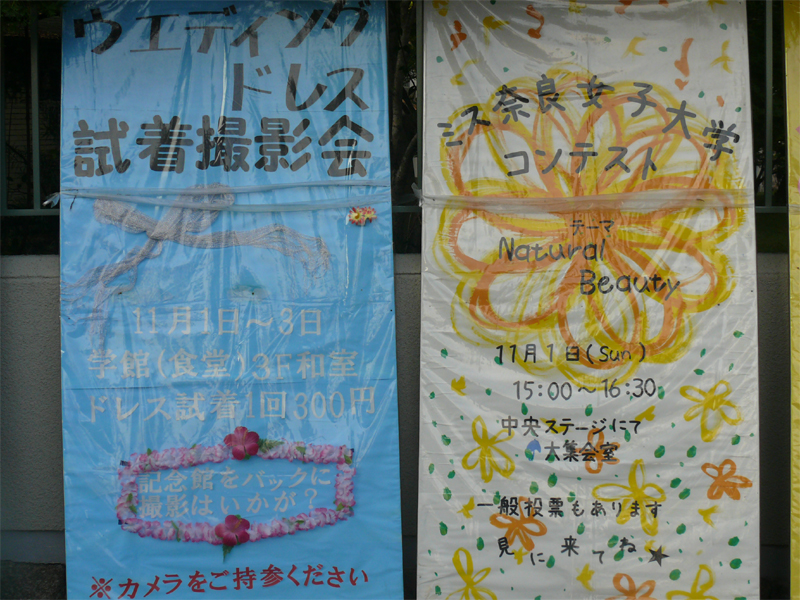 ウエディング
ドレス
試着撮影会
11月1日～3日
学館(食堂)3F和室
ドレス試着1回300円
記念館をバックに
撮影はいかが？
※カメラをご持参ください
ミス奈良女子大学
コンテスト
テーマ
Natural
Beauty
11月1日(Sun)
15:00～16:30
中央ステージにて
大集会室
一般投票もあります
見に来てね★